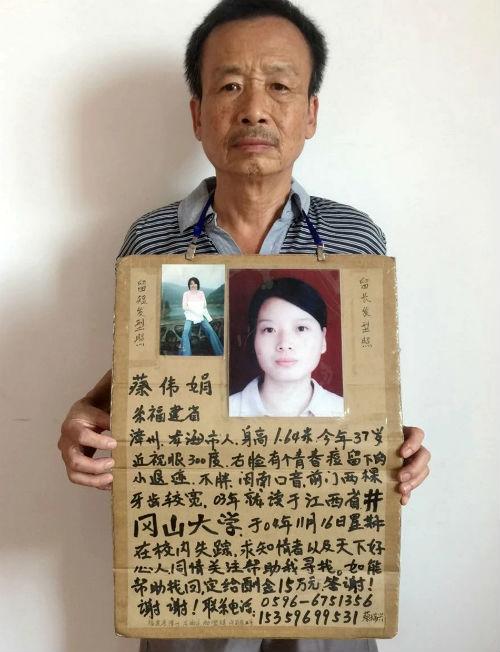 留短发型照
留长发型照
蔡伟娟
福建省
漳州 市人,身高1.64米今年37岁
近视眼300度.右脸有个青春痘留下的
小 .不胖.闽南口音,前门两颗
牙齿较宽.03年就读于江西省井
冈山大学.于04年11月16日星期
在校内失踪.求知情者以及天下好
心人同情关注帮助我寻找。如能
帮助找回定给酬金15万元答谢!
谢谢!联系电话:0596-6751356
15359699531